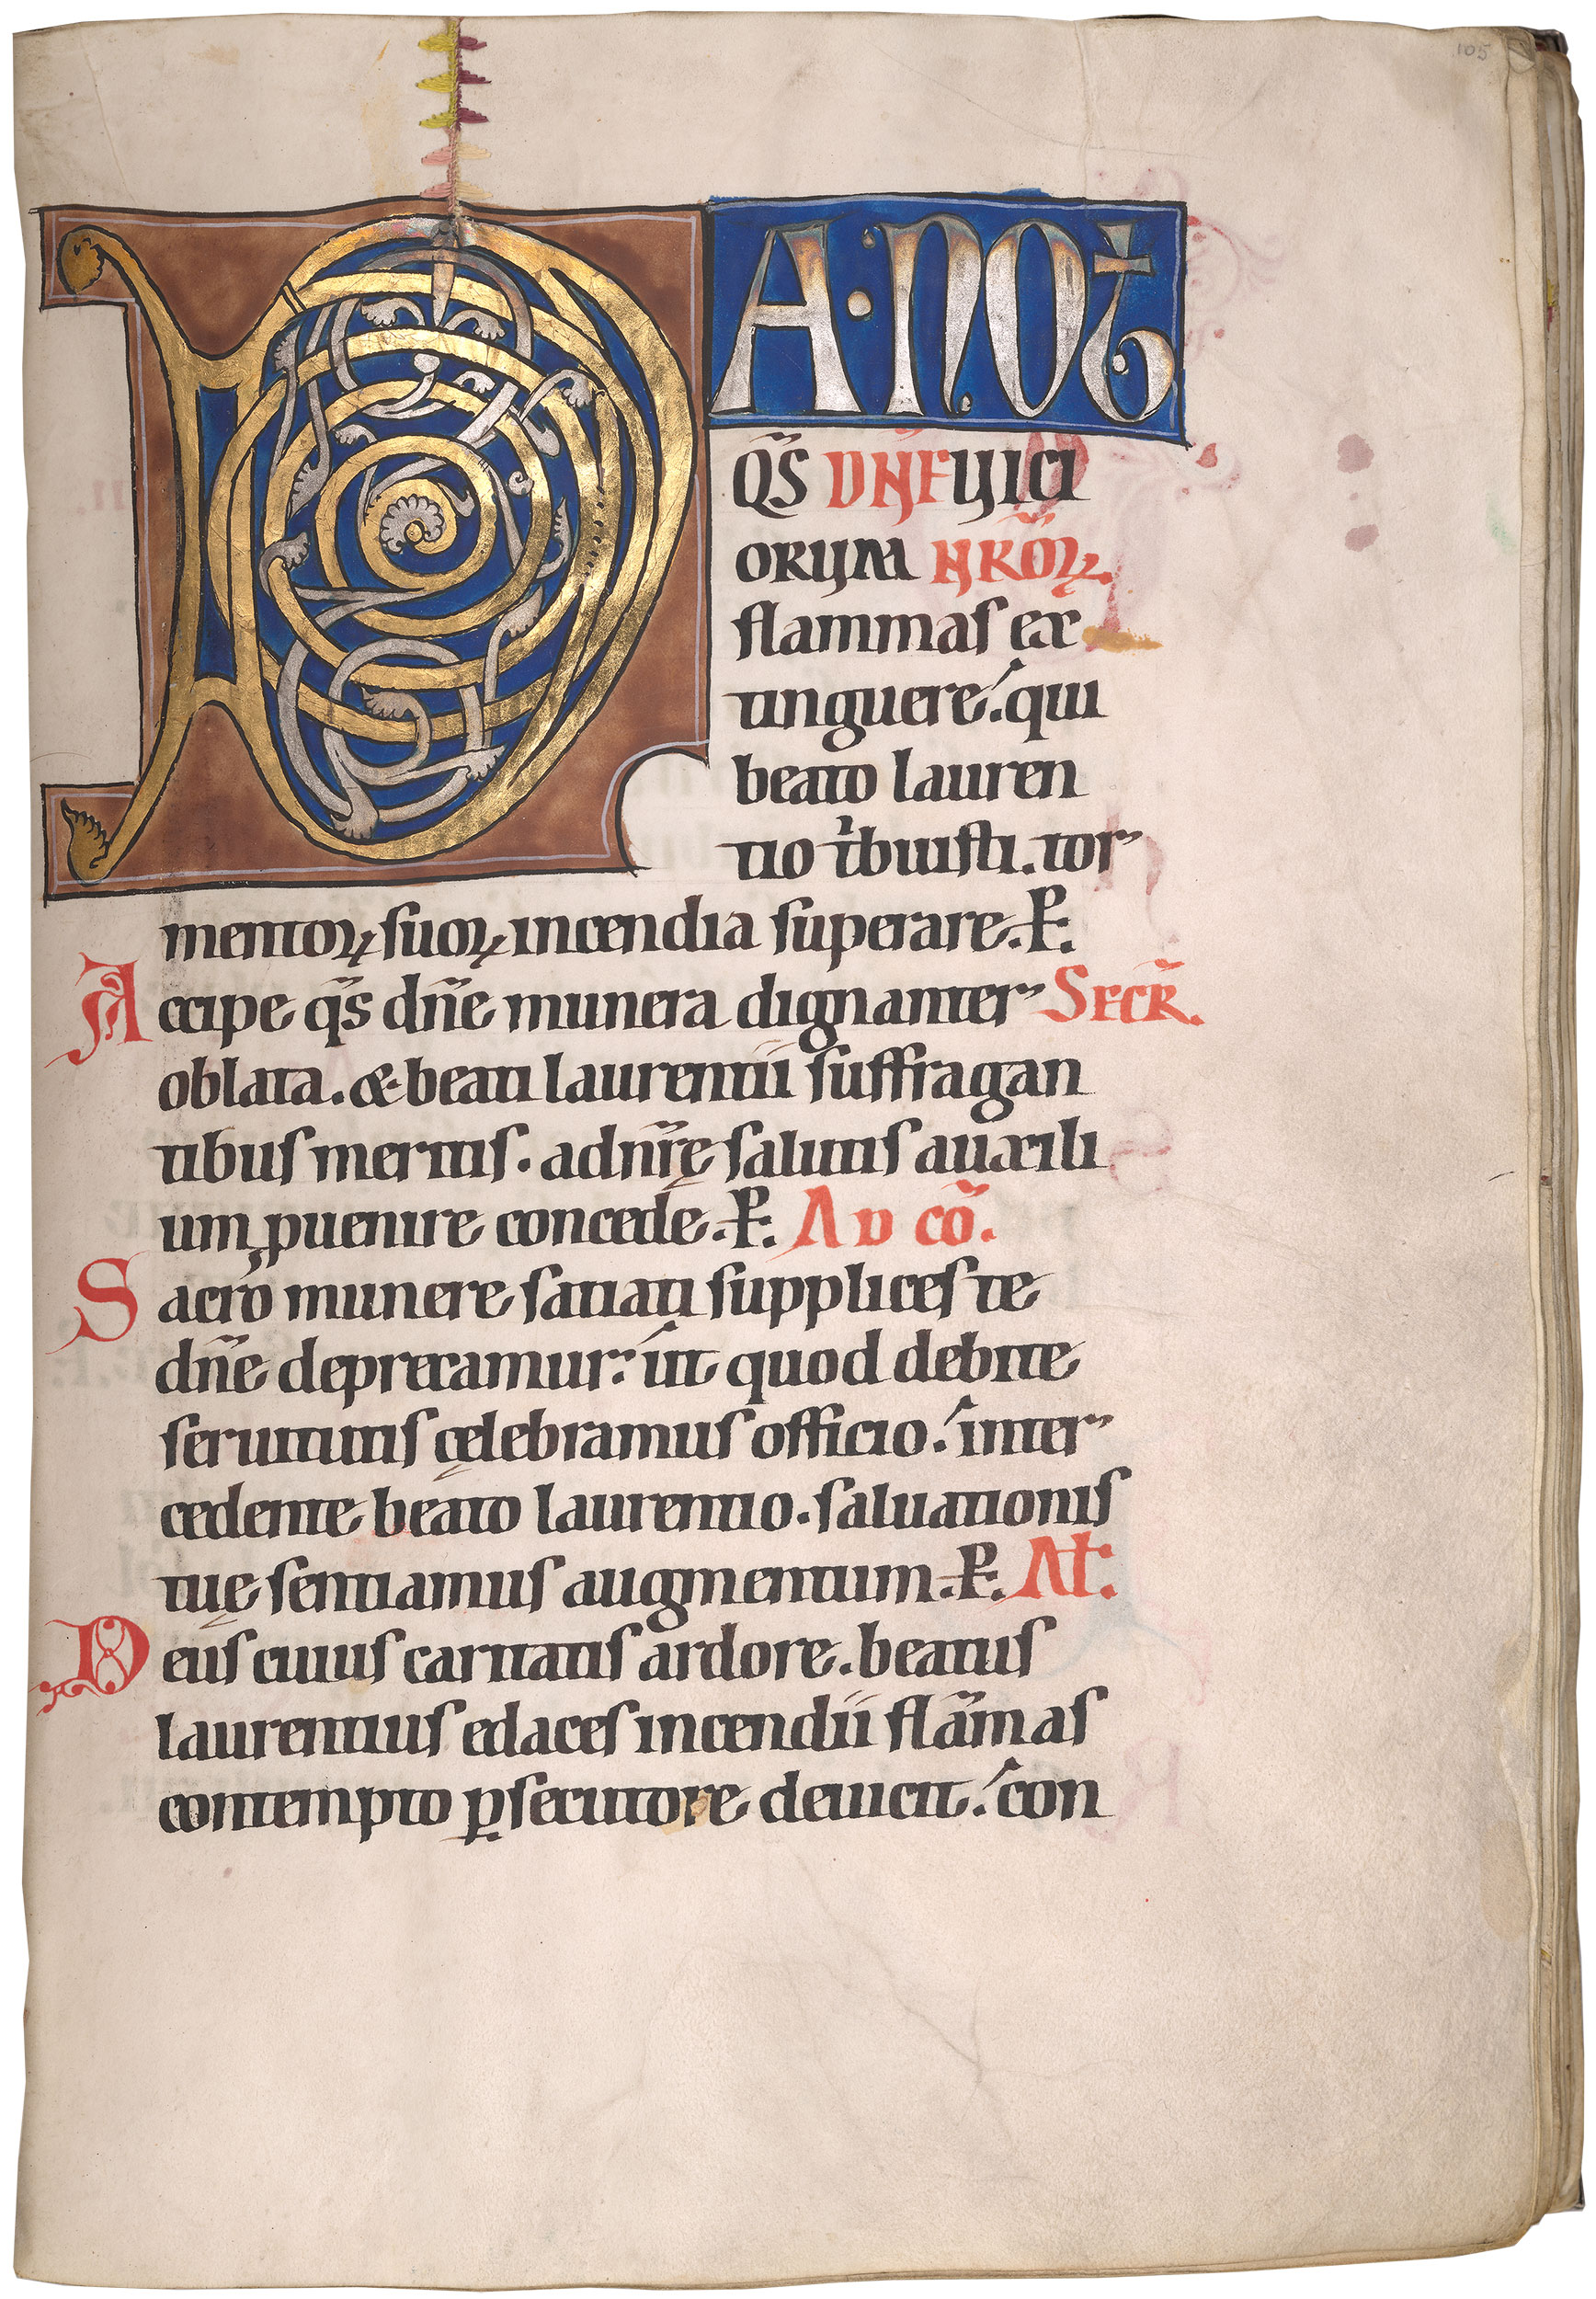 105
DA·NOƀ
q̃s dñe uici
orum nr̃oꝝ.
flammas ex
tinguere. qui
beato lauren
tio tͥbuisti. tor
mentoꝝ suoꝝ incendia superare. P̱.
Accipe q̃s dñe munera dignanter Secr̃.
oblata. & beati laurentii suffragan
tibus meritis. ad nr̃ę salutis auxili
um ꝑuenire concede. P̱. Ad cõ.
Sacro munere satiati supplices te
dñe deprecamur. ut quod debite
seruitutis cęlebramus officio. inter
cedente beato laurentio. saluationis
tuę sentiamus augmentum. P̱. Aƚ.
Deus cuius caritatis ardore. beatus
laurentius edaces incendii flãmas
contempto ꝑsecutore deuicit. con